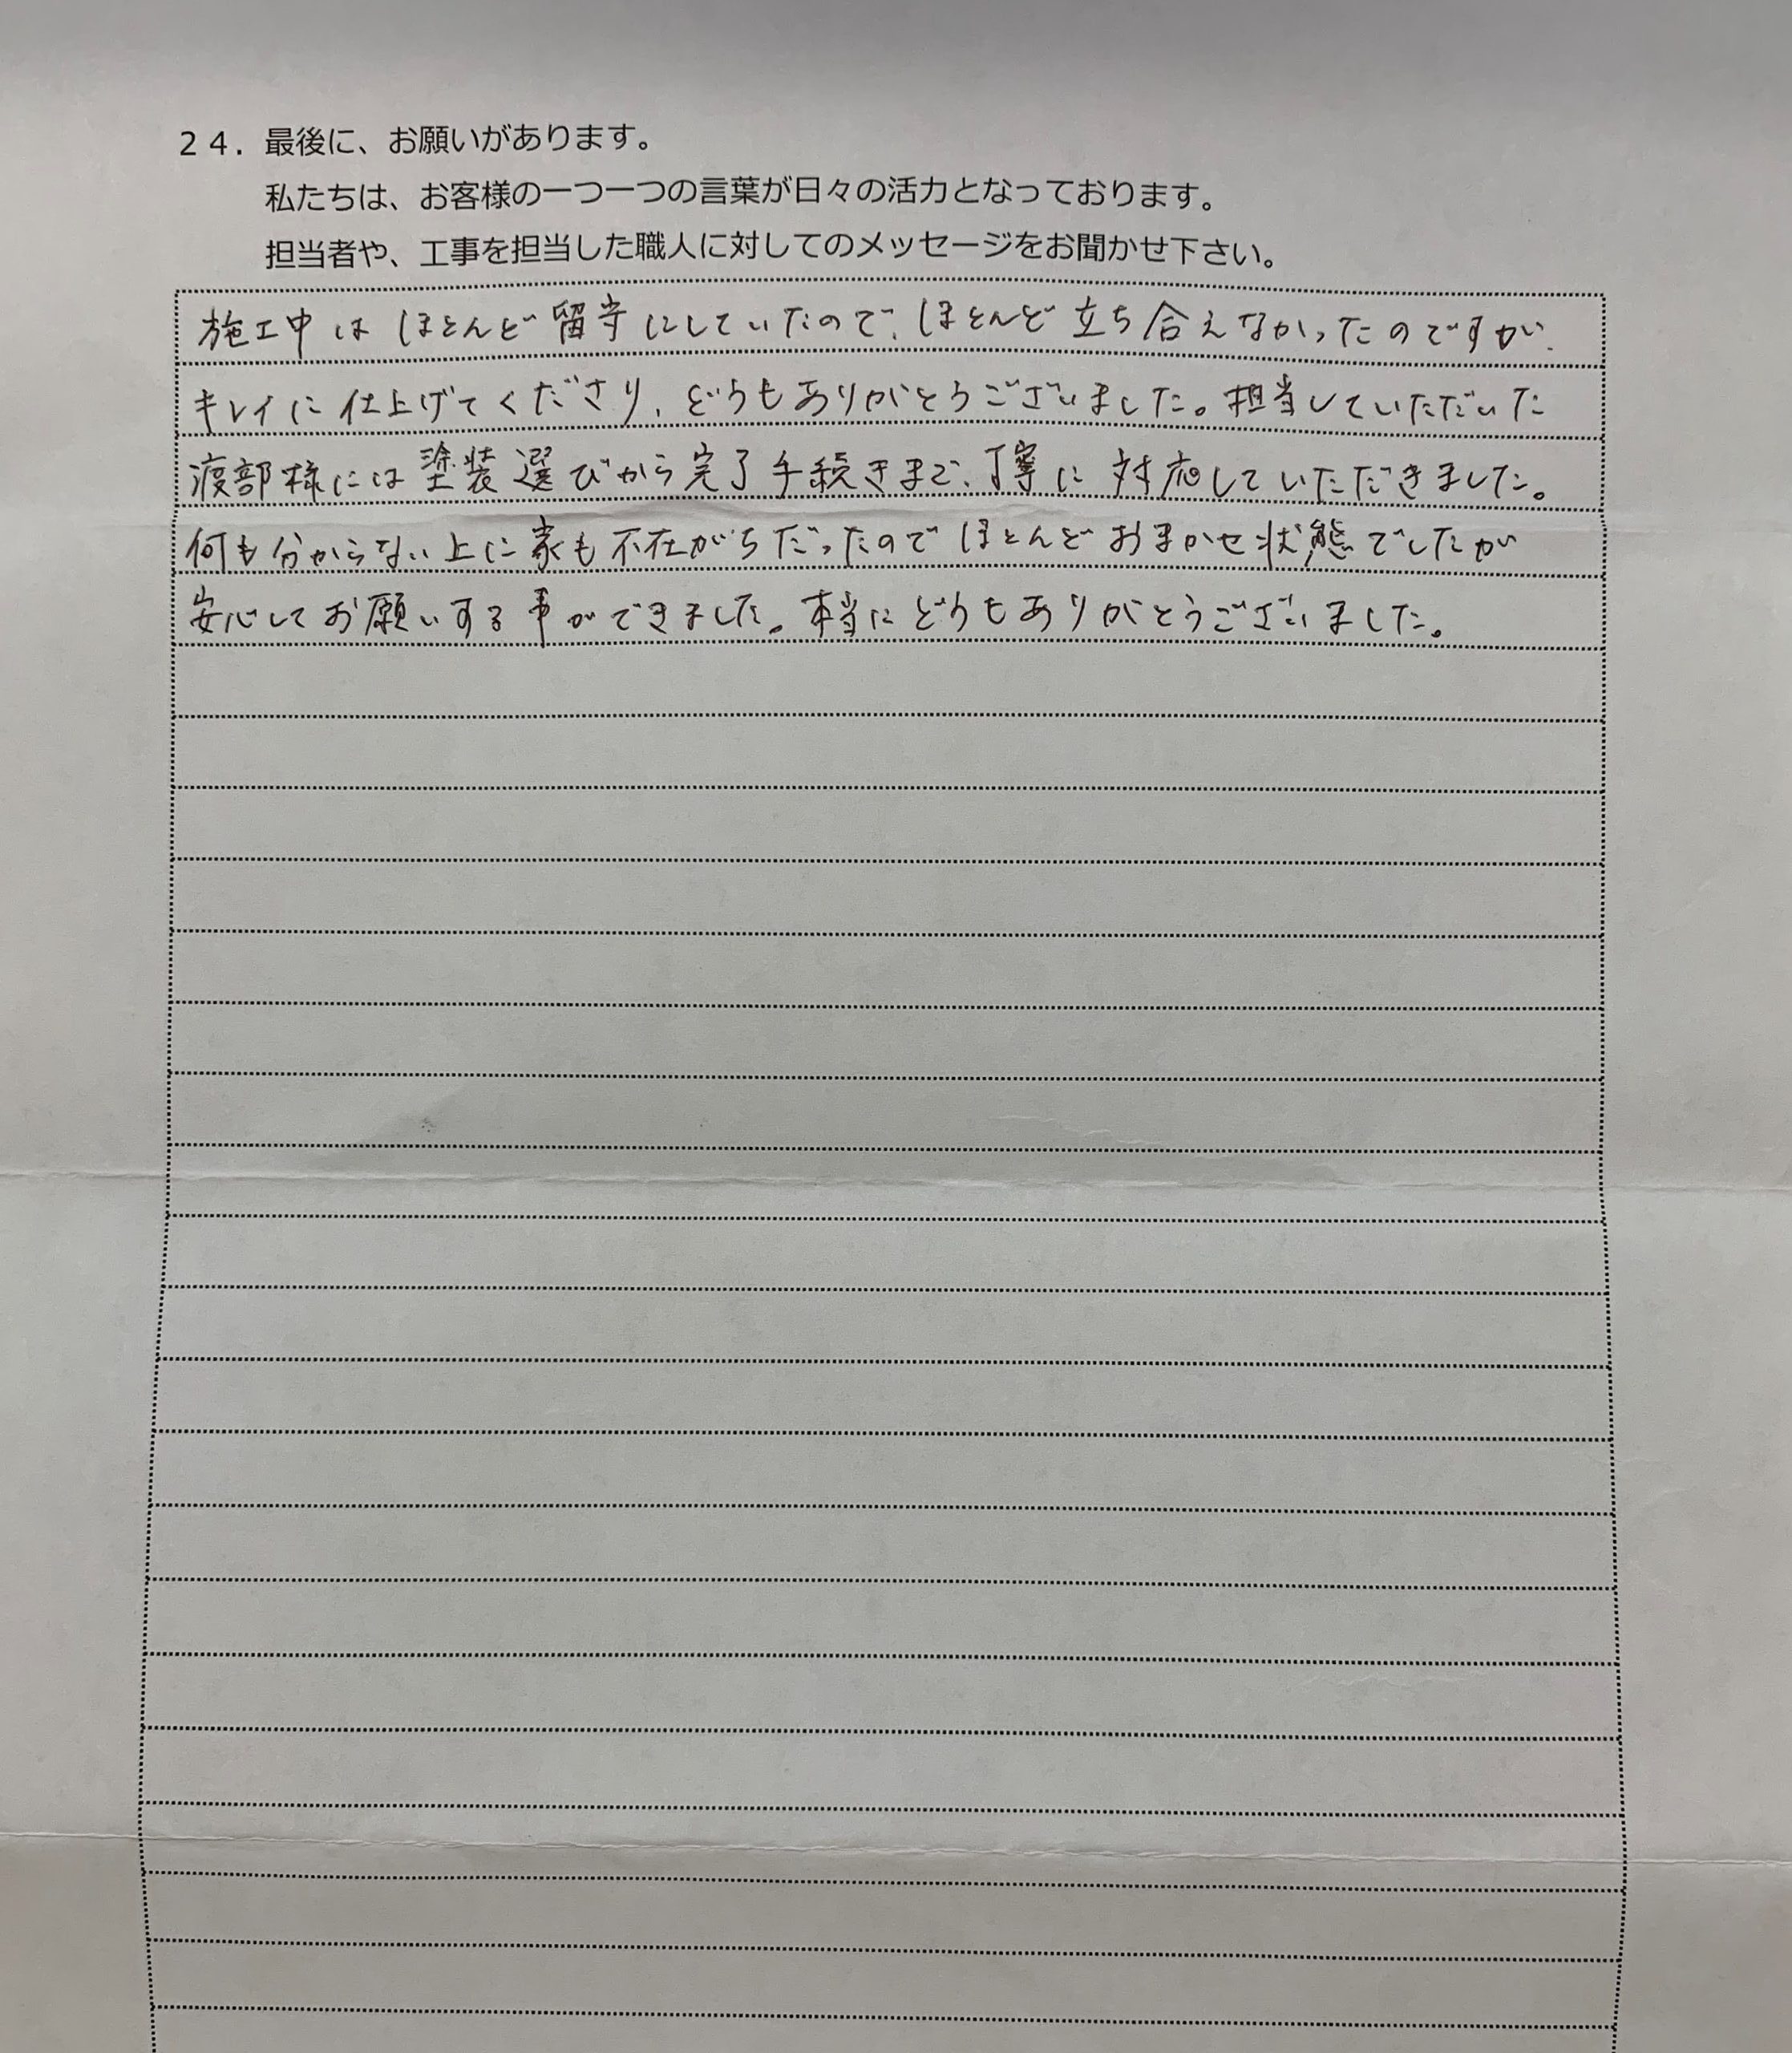 ２４．最後に、お願いがあります。
私たちは、お客様の一つ一つの言葉が日々の活力となっております。
担当者や、工事を担当した職人に対してのメッセージをお聞かせ下さい。
施工中はほとんど留守にしていたので、ほとんど立ち合えなかったのですが、
キレイに仕上げてくださり、どうもありがとうございました。担当していただいた
渡部様には塗装選びから完了手続きまで、丁寧に対応していただきました。
何も分からない上に家も不在がちだったのでほとんどおまかせ状態でしたが
安心してお願いする事ができました。本当にどうもありがとうございました。